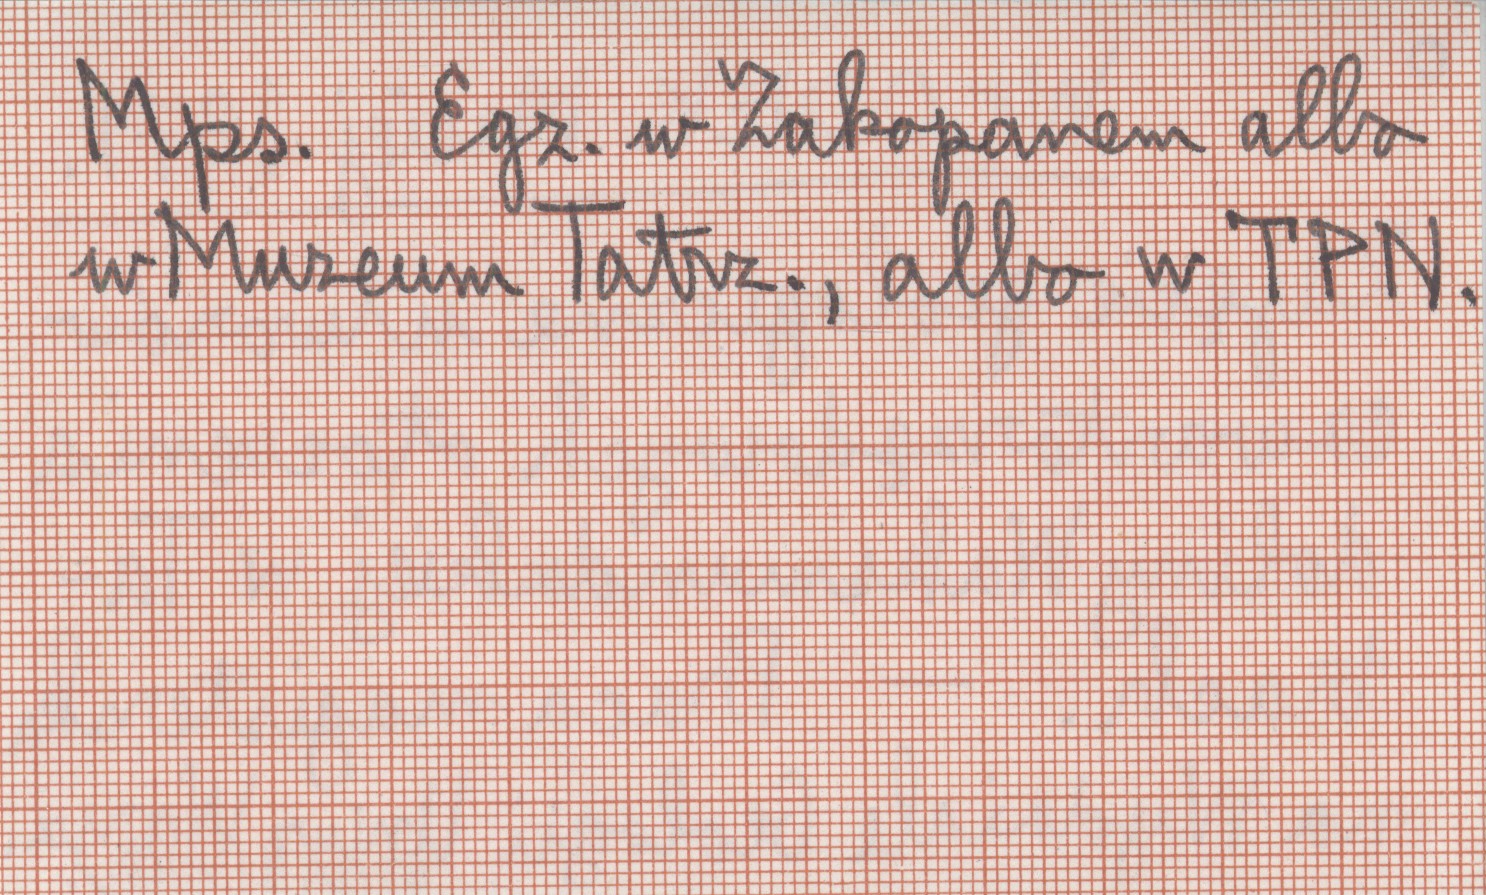 Mps. Egz. w Zakopanem albo
w Muzeum Tatrz., albo w TPN.